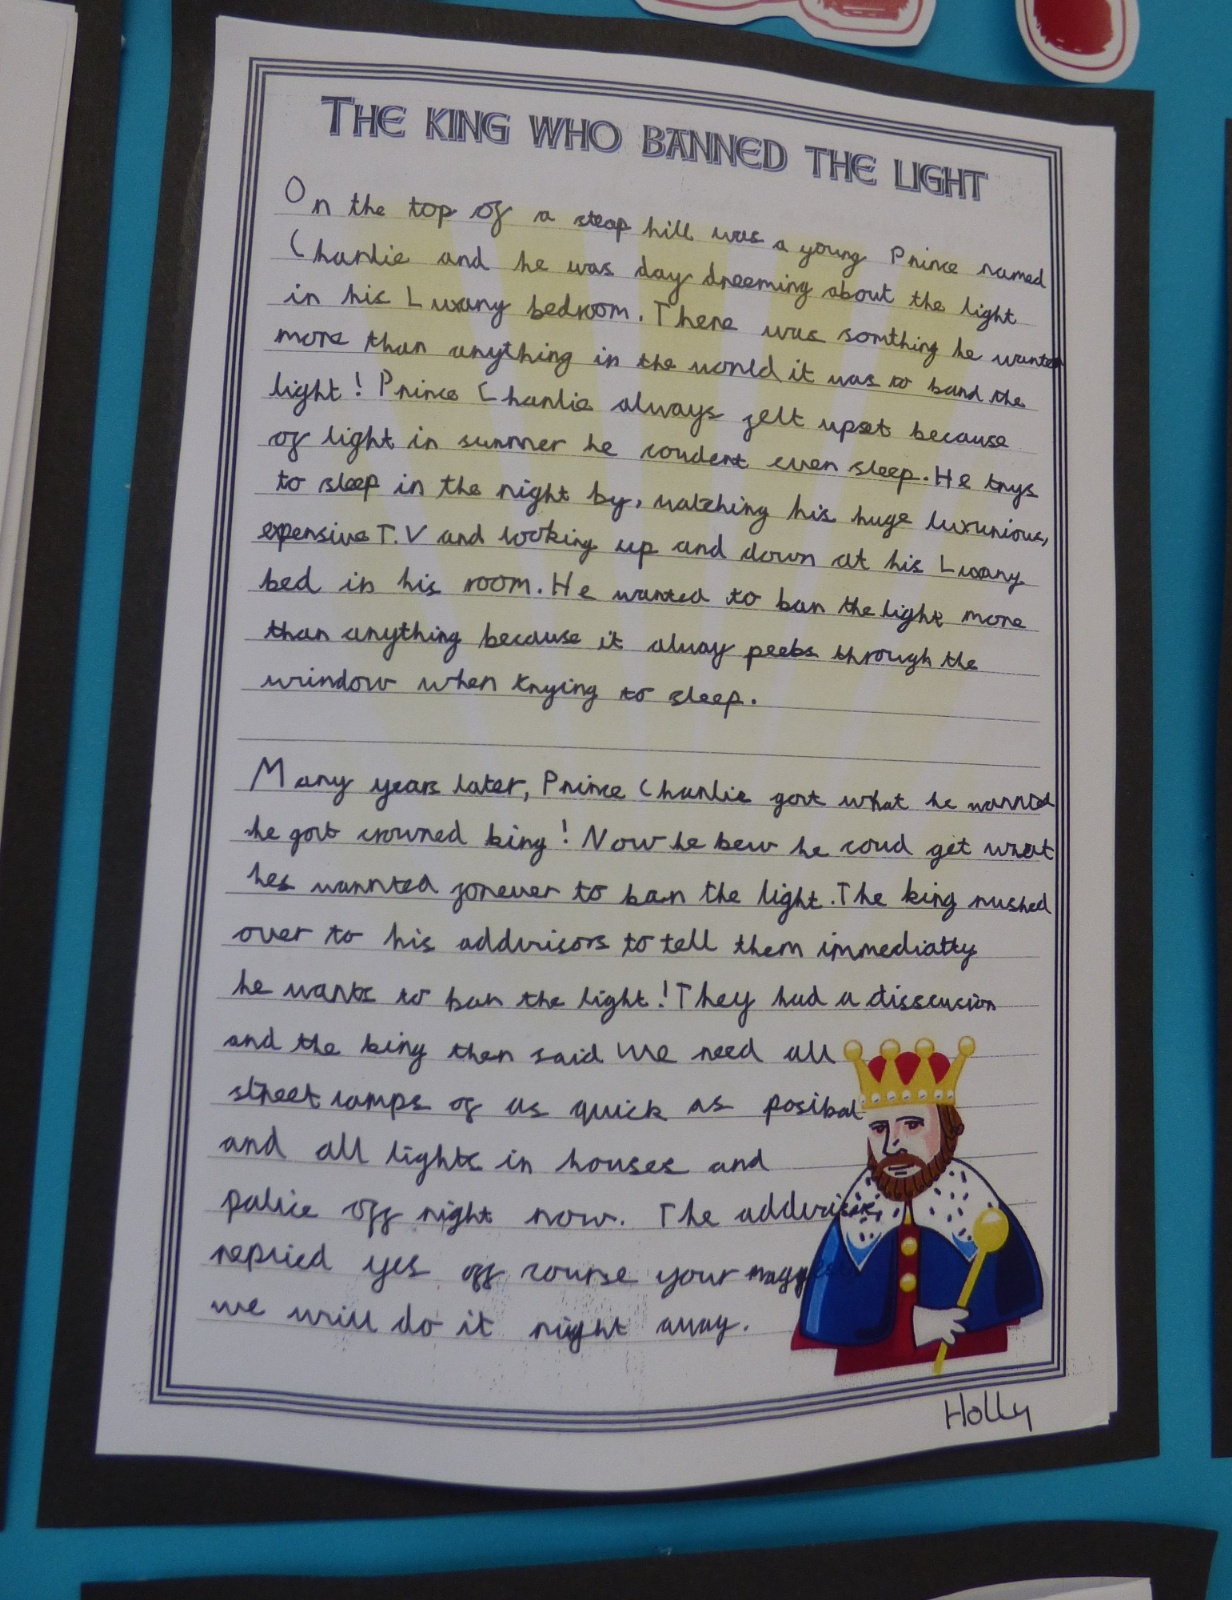 THE KING WHO BANNED THE LIGHT
On the top of a steap hill was a young Prince named
Charlie and he was day dreeming about the light
in his Luxary bedroom. There was somthing he wanted
more than anything in the world it was to band the
light! Prince Charlie always felt upset because
of light in summer he coudent even sleep. He trys
to sleep in the night by, watching his huge luxurious,
expensive T.V and looking up and down at his Luxary
bed in his room. He wanted to ban the light more
than anything because it alway peebs through the
window when trying to sleep.
Many years later, Prince Charlie gort what he wannted
he gort crowned king! Now he kew he coud get what
hes wannted forever to ban the light. The king rushed
over to his addvisors to tell them immediatty
he wants to ban the light! They had a disscusion
and the king then said we need all
street lamps of as quick as posibal
and all lights in houses and
palice off right now. The
replied yes off course your
we will do it right away.
Holly